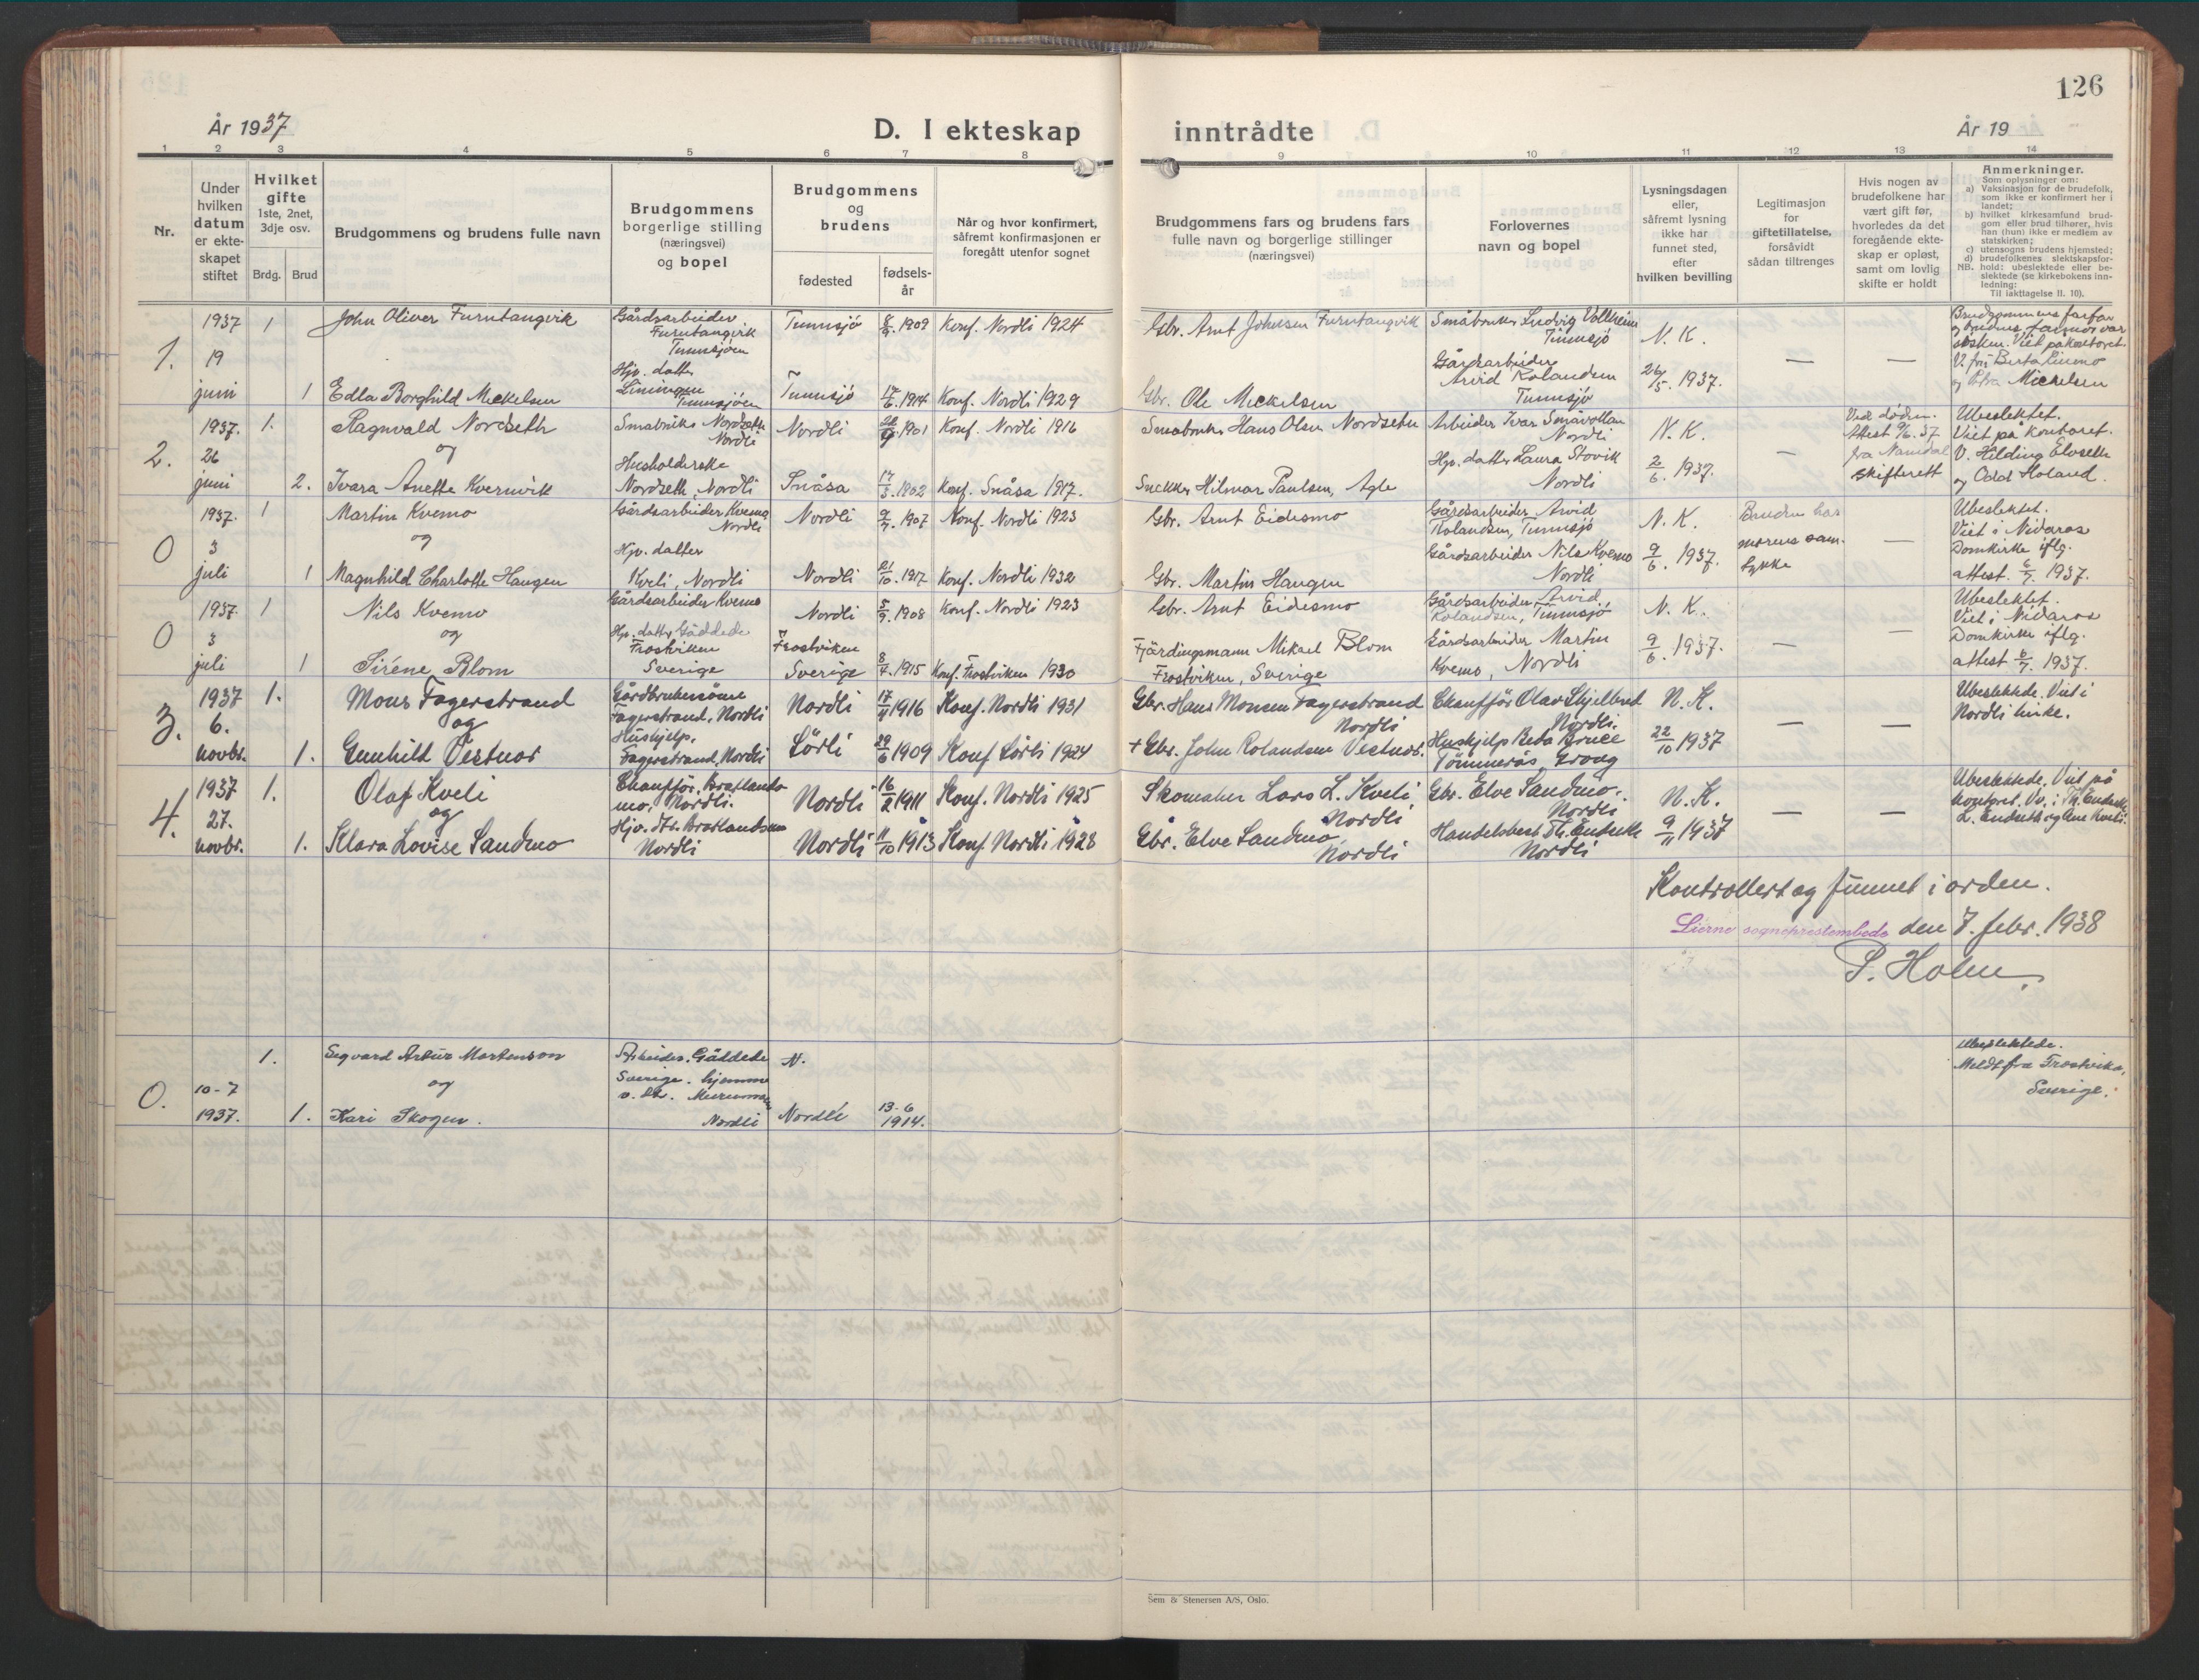 126
År 1937
D. I ekteskap inntrådte
År 19
1 2 3 4 5 6 7 8 9 10 11 12 13 14
Nr.
Under hvilken datum er ekte-skapet stiftet
Hvilket gifte
1ste, 2net, 3dje osv.
Brdg. Brud
Brudgommens og brudens fulle navn
Brudgommens borgerlige stilling (næringsvei) og bopel
Brudgommens og brudens
fødested
fødsels-år
Når og hvor konfirmert, såfremt konfirmasjonen er foregått utenfor sognet
Brudgommens fars og brudens fars fulle navn og borgerlige stillinger (næringsvei)
Forlovernes navn og bopel
Lysningsdagen eller, såfremt lysning ikke har funnet sted, efter hvilken bevilling
Legitimasjon for giftetillatelse, forsåvidt sådan tiltrenges
Hvis nogen av brudefolkene har vært gift før, hvorledes da det foregående ekte-skap er opløst, samt om lovlig skifte er holdt
Anmerkninger.
Som oplysninger om:
a) Vaksinasjon for de brudefolk, som ikke er konfirmert her i landet;
b) hvilket kirkesamfund brud-gom eller brud tilhører, hvis han (hun) ikke er medlem av statskirken;
c) utensogns brudens hjemsted;
d) brudefolkenes slektskapsfor-hold: ubeslektede eller be-slektede (se kirkebokens inn-ledning:
NB.
Til iakttagelse II. 10).
1.
1937
19
juni
1
John Oliver Furutangvik
Gårdsarbeider
Furutangvik
Tunnsjøen
Tunnsjø
8/9 1909
Konf. Nordli 1924
Gbr. Arnt Johnsen Furutangvik
Småbruker Ludvig Vollheim
Tunnsjø
N. K.
26/5 1937.
—
—
Brudgommens farfar
og brudens farmor var
søsken. Viet på kontoret.
V. frk Berta Linmo
og Petra Mickelsen
1
Edla Borghild Mickelsen
Hjv. datter
Liningen
Tunnsjøen
Tunnsjø
17/6 1914
Konf. Nordli 1929
Gbr. Ole Mickelsen
Gårdsarbeider
Arvid Rolandsen
Tunnsjø
2.
1937.
26
juni
1.
Ragnvald Nordseth
og
Småbruker Nordseth
Nordli
Nordli
26/9 1901
Konf. Nordli 1916
Småbruker Hans Olsen Nordseth
Arbeider Ivar Småvollan
Nordli
N. K.
2/6 1937.
—
Ved døden.
Attest 9/6. 37
fra Namdal
skifterett
Ubeslektet.
Viet på kontoret.
V. Hilding Elvseth
og Odd Holand.
2.
Ivara Anette Kvernvik
Husholderske
Nordseth, Nordli
Snåsa
17/3 1902
Konf. Snåsa 1917.
Snekker Hilmar Paulsen, Agle
Hjv. datter Laura Stovik
Nordli
0
1937.
3
juli
1
Martin Kvemo
og
Gårdsarbeider Kvemo
Nordli
Nordli
9/7 1907
Konf. Nordli 1923
Gbr. Arnt Eidesmo
Gårdsarbeider Arvid
Rolandsen, Tunnsjø
N. K.
9/6. 1937.
Bruden har
morens sam-
tykke
—
Ubeslektet.
Viet i Nidaros
Domkirke iflg.
attest. 6/7. 1937.
1
Magnhild Charlotte Haugen
Hjv. datter
Kveli, Nordli
Nordli
21/10. 1917
Konf. Nordli 1932
Gbr. Martin Haugen
Gårdsarbeider Nils Kvemo
Nordli
0
1937.
3
juli
1
Nils Kvemo
og
Gårdsarbeider Kvemo
Nordli
5/9. 1908
Konf. Nordli 1923
Gbr. Arnt Eidesmo
Gårdsarbeider Arvid
Rolandsen, Tunnsjø
N. K.
9/6. 1937.
—
—
Ubeslektet.
Viet i Nidaros
Domkirke iflg.
attest 6/7. 1937.
1
Siréne Blom
Hjv. datter Gäddede
Frostviken
Sverige
Frostviken
Sverige
8/4. 1915
Konf. Frostviken 1930
Fjärdingsmann Mikael Blom
Frostviken, Sverige
Gårdsarbeider Martin
Kvemo, Nordli
3.
1937
6.
novbr.
1.
Mons Fagerstrand
og
Gårdbrukersønn
Fagerstrand, Nordli
Nordli
17/4 1916
Konf. Nordli 1931
Gbr. Hans Monsen Fagerstrand
Nordli
Chauffør Olav Skjelbred
Nordli
N. K.
22/10 1937
—
—
Ubeslektede. Viet i
Nordli kirke.
1.
Gunhild Vestnor
Hushjelp.
Fagerstrand, Nordli
Sörli
29/6 1909
Konf Sörli 1924
+ Gbr. John Rolandsen Vestnor.
Hushjelp Beba Bruce
Tömmerås, Grong
4.
1937
27.
novbr.
1.
Olaf Kveli
og
Chauffør, Bratlands-
mo, Nordli.
Nordli
16/2 1911
Konf. Nordli 1925
Skomaker Lars L. Kveli
Nordli
Gbr. Elve Sandmo.
Nordli
N. K.
9/11 1937
—
—
Ubeslektede. Viet på
kontoret.
1.
Klara Lovise Sandmo
Nordli
Nordli
11/10 1913
Konf. Nordli 1928
Gbr. Elve Sandmo,
Nordli
Nordli
Kontrollert og funnet i orden.
Lierne sogneprestembede den 7. febr. 1938
P. Holm.
0.
10-7
1937.
1.
Segvard Artur Martenson
og
Arbeider. Gäddede
Sverige. hjemme
N.
Ubeslektede.
Meldt fra Frostviken,
Sverige.
1.
Kari Skogen.
Nordli
Nordli
13-6
1914.
Sem & Stenersen A/S, Oslo.